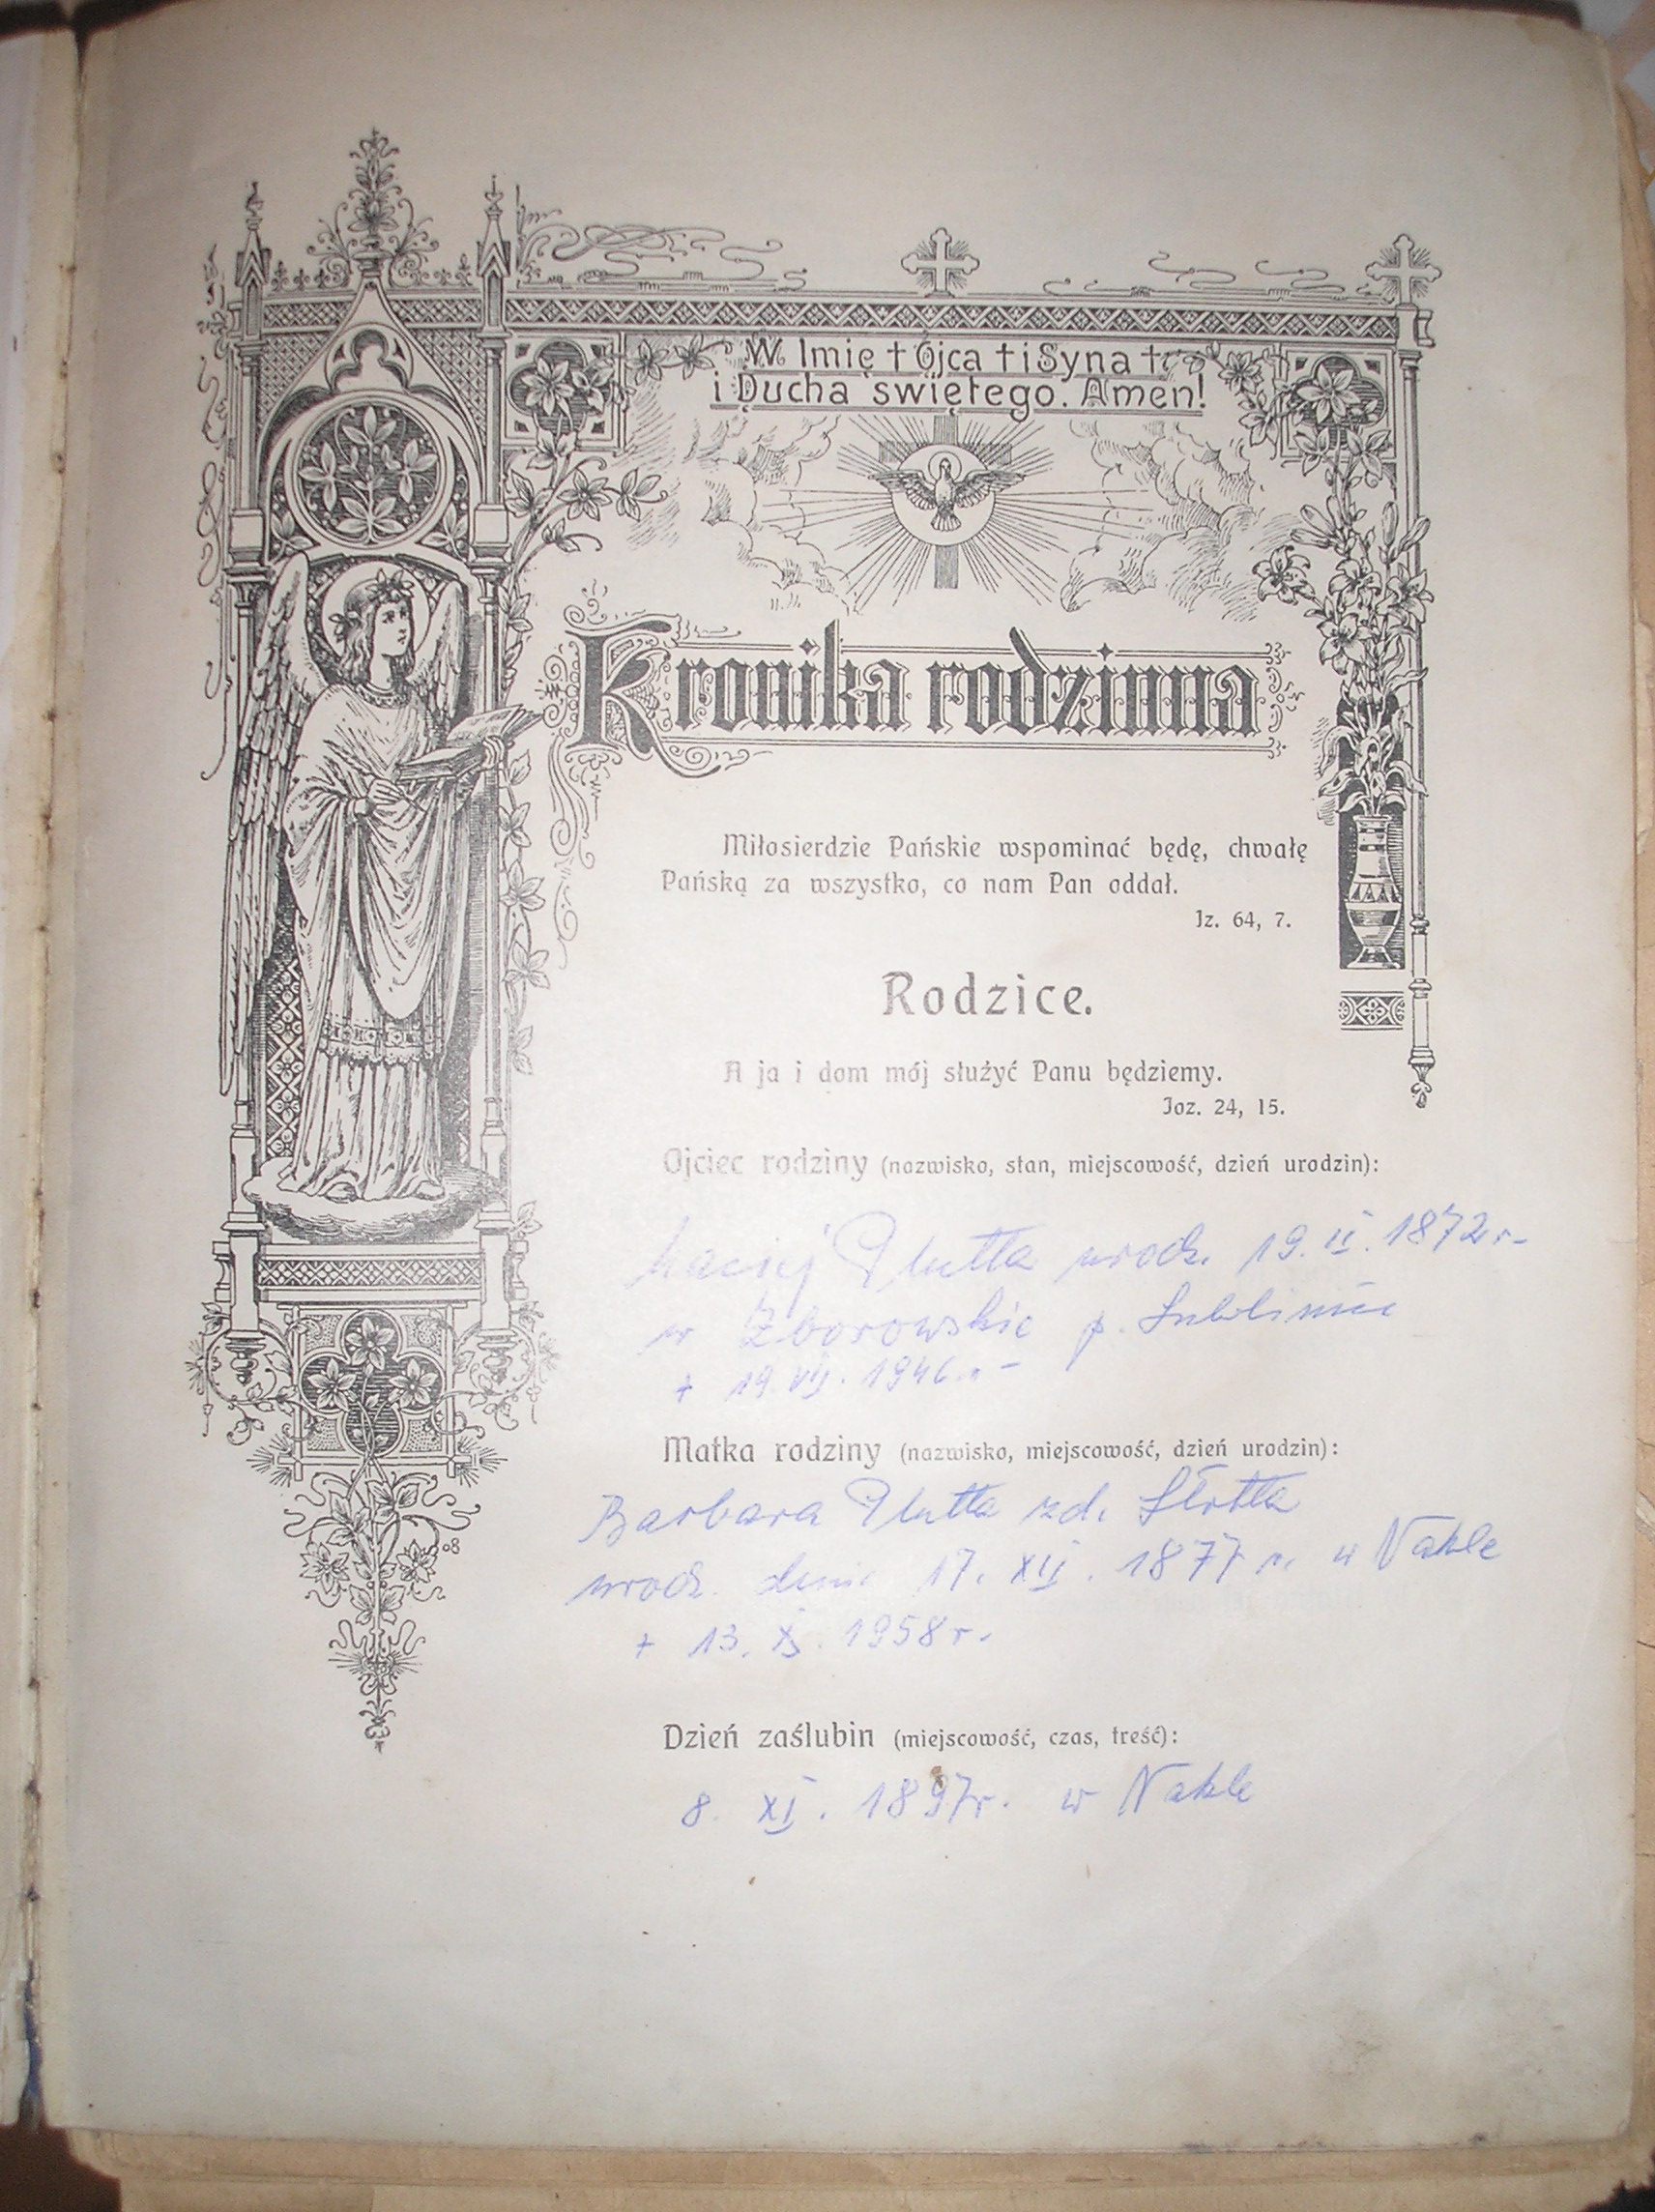 W Imię † Ojca † i Syna †
i Ducha świętego. Amen!
Kronika rodzinna
Miłosierdzie Pańskie wspominać będę, chwałę
Pańską za wszystko, co nam Pan oddał.
Iz. 64, 7.
Rodzice.
A ja i dom mój służyć Panu będziemy.
Joz. 24, 15.
Ojciec rodziny (nazwisko, stan, miejscowość, dzień urodzin):
Maciej Plutta urodz. 19. II. 1872 r.
w Zborowskie p. Lubliniec
+ 19. VII. 1946 r.
Matka rodziny (nazwisko, miejscowość, dzień urodzin):
Barbara Plutta zd.
urodz. dnia 17. XII. 1877 r. w Nakle
+ 13. 1958 r.
08
Dzień zaślubin (miejscowość, czas, treść):
8. XI. 1897 r. w Nakle